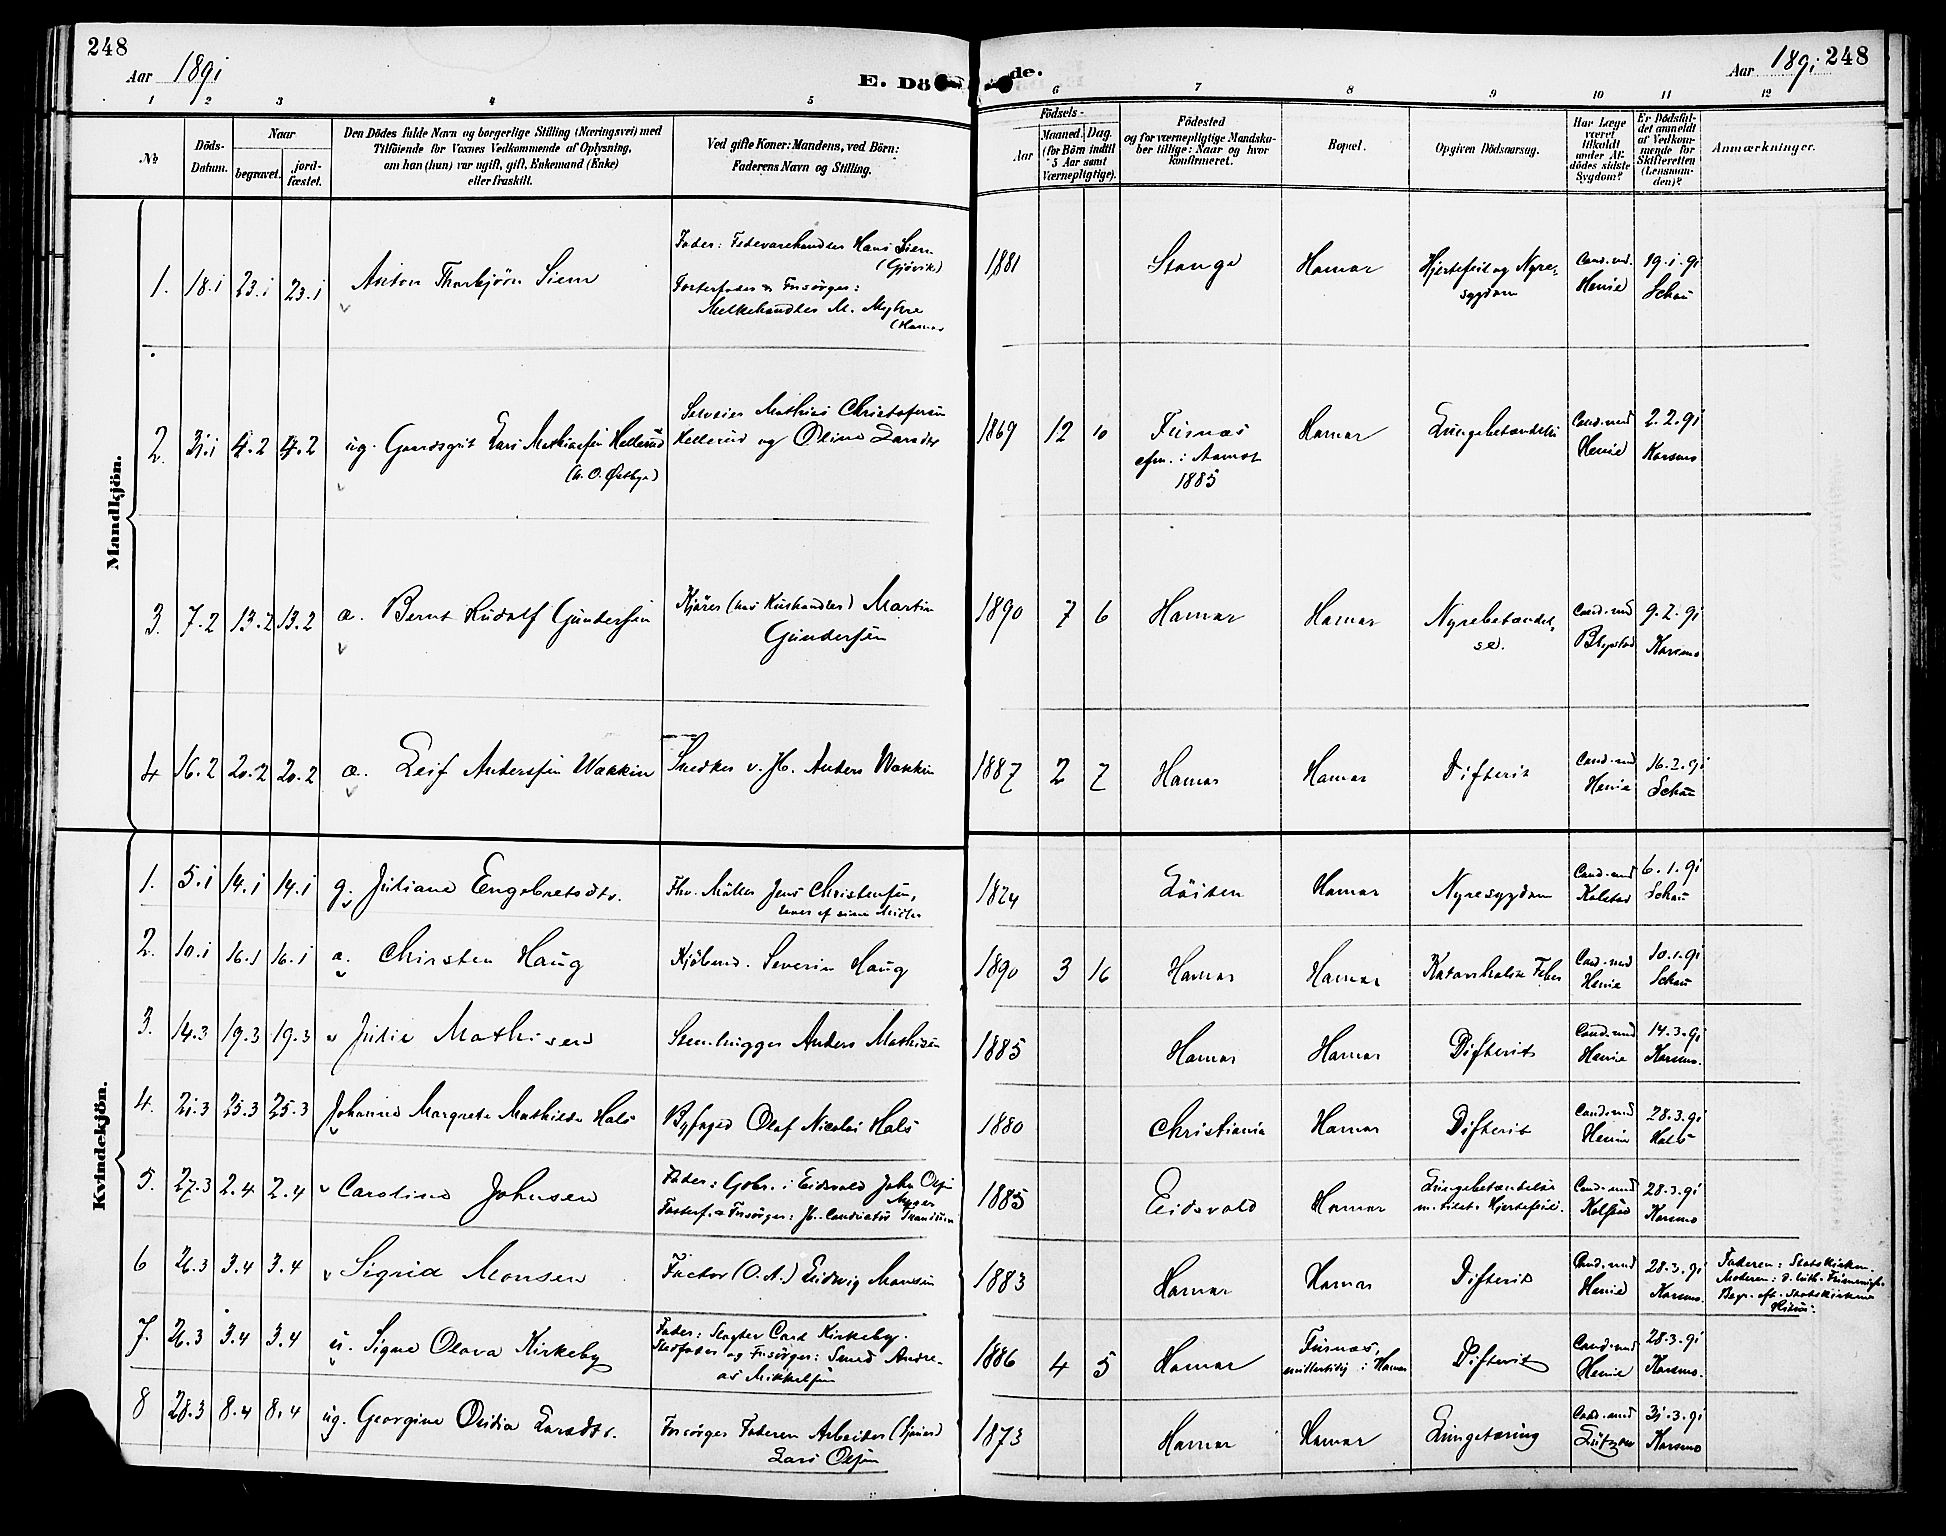 248
Aar 1891
E. Dö
de.
Aar 1891
248
1 2 3 4 5 6 7 8 9 10 11 12
No.
Döds-Datum.
Naar
begravet.
jord-fæstet.
Den Dödes fulde Navn og borgerlige Stilling (Næringsvei) med
Tilföiende for Voxnes Vedkommende af Oplysning,
om han (hun) var ugift, gift, Enkemand (Enke)
eller fraskilt.
Ved gifte Koner: Mandens, ved Börn:
Faderens Navn og Stilling.
Födsels-
Aar
Maaned. Dag.
(for Börn indtil
5 Aar samt
Værnepligtige).
Födested
og for værnepligtige Mandska-
ber tillige: Naar og hvor
konfirmeret.
Bopæl.
Opgiven Dödsaarsag.
Har Læge
været
tilkaldt
under Af-
dödes sidste
Sygdom?
Er Dödsfal-
det anmeldt
af Vedkom-
mende for
Skifteretten
(Lensman-
den)?
Anmærkninger.
Mandkjön.
1. 18.1 23.1 23.1 Anton Thorbjörn Siem
Fader: Fedevarehandler Hans Siem
(Gjövik)
Fosterfader & Forsörger:
Melkehandler M. Myhre
(Hamar
1881 Stange Hamar Hjertefeil og Nyre-
sygdom
Cand. md. Henie
19.1.91 Schau
2. 31.1 4.2 4.2 ug. Gaardsgut Lars Mathiasen Hellerud
(h. O. Østbye)
Selveier Mathias Christofersen
Hellerud og Oline Larsdtr
1869 12 10 Furnæs
cfm. i Aamot
1885
Hamar Lungebetændelse
Cand. med Henie
2.2.91 Karsmo
3. 7.2 13.2 13.2 æ. Bernt Rudolf Gundersen
Kjörer (hos Kushandler) Martin
Gundersen
1890 7 6 Hamar Hamar Nyrebetændel-
se.
Cand. md Blystad
9.2.91 Karsmo
4 16.2 20.2 20.2 æ. Leif Andersen Wakkin
Snedker v. Jb. Anders Wakkin
1887 2 7 Hamar Hamar Difterit
Cand. md Henie
16.2.91 Schau
Kvindekjön.
1. 5.1 14.1 14.1 g. Juliane Engebretsdtr.
Fhv. Möller Jens Christensen,
lever af sine Midler
1824 Löiten Hamar Nyresygdom
Cand. md Kolstad
6.1.91 Schau
2. 10.1 16.1 16.1 æ. Chirsten Haug
Kjöbmd. Severin Haug
1890 3 16 Hamar Hamar Katarrhalsk Feber
Cand. med Henie
10.1.91 Schau
3. 14.3 19.3 19.3 Julie Mathisen
Stenhugger Anders Mathisen
1885 Hamar Hamar Difterit
Cand. md Henie
14.3.91 Karsmo.
4. 21.3 25.3 25.3 Johanne Margrete Mathilde Hals
Byfoged Olaf Nicolai Hals
1880 Christiania Hamar Difterit
Cand. md Henie
28.3.91 Hals
5. 27.3 2.4 2.4 Caroline Johnsen
Fader: Gbr. i Eidsvold John Olsen
Fosterf. & Forsörger: Jb. Conductör Trandum
1885 Eidsvold Hamar Lungebetændelse
m. tilst. Hjertefeil.
Cand. med Kolstad
28.3.91 Karsmo
6 26.3 3.4 3.4 Sigrid Monsen
Factor (O.A.) Ludwig Monsen
1883 Hamar Hamar Difterit
Cand. md Henie
28.3.91 Karsmo.
Faderen: Statskirken.
Moderen: d. luth. Frimenigh.
Begr. eft. Statskirkens
Ritus.
7. 26.3 3.4 3.4 u. Signe Olava Kirkeby
Fader: Slagter Carl Kirkeby.
Stedfader og Forsörger: Smed Andre-
as Mikkelsen
1886 4 5 Hamar Furnæs,
midlertidig i Hamar
Difterit
Cand. md Henie
28.3.91 Karsmo.
8 28.3 8.4 8.4 ug. Georgine Ovidia Larsdtr.
Forsörger Faderen Arbeider (Kjörer)
Lars Olsen
1873 Hamar Hamar Lungetæring
Cand. med Lützow
31.3.91 Karsmo